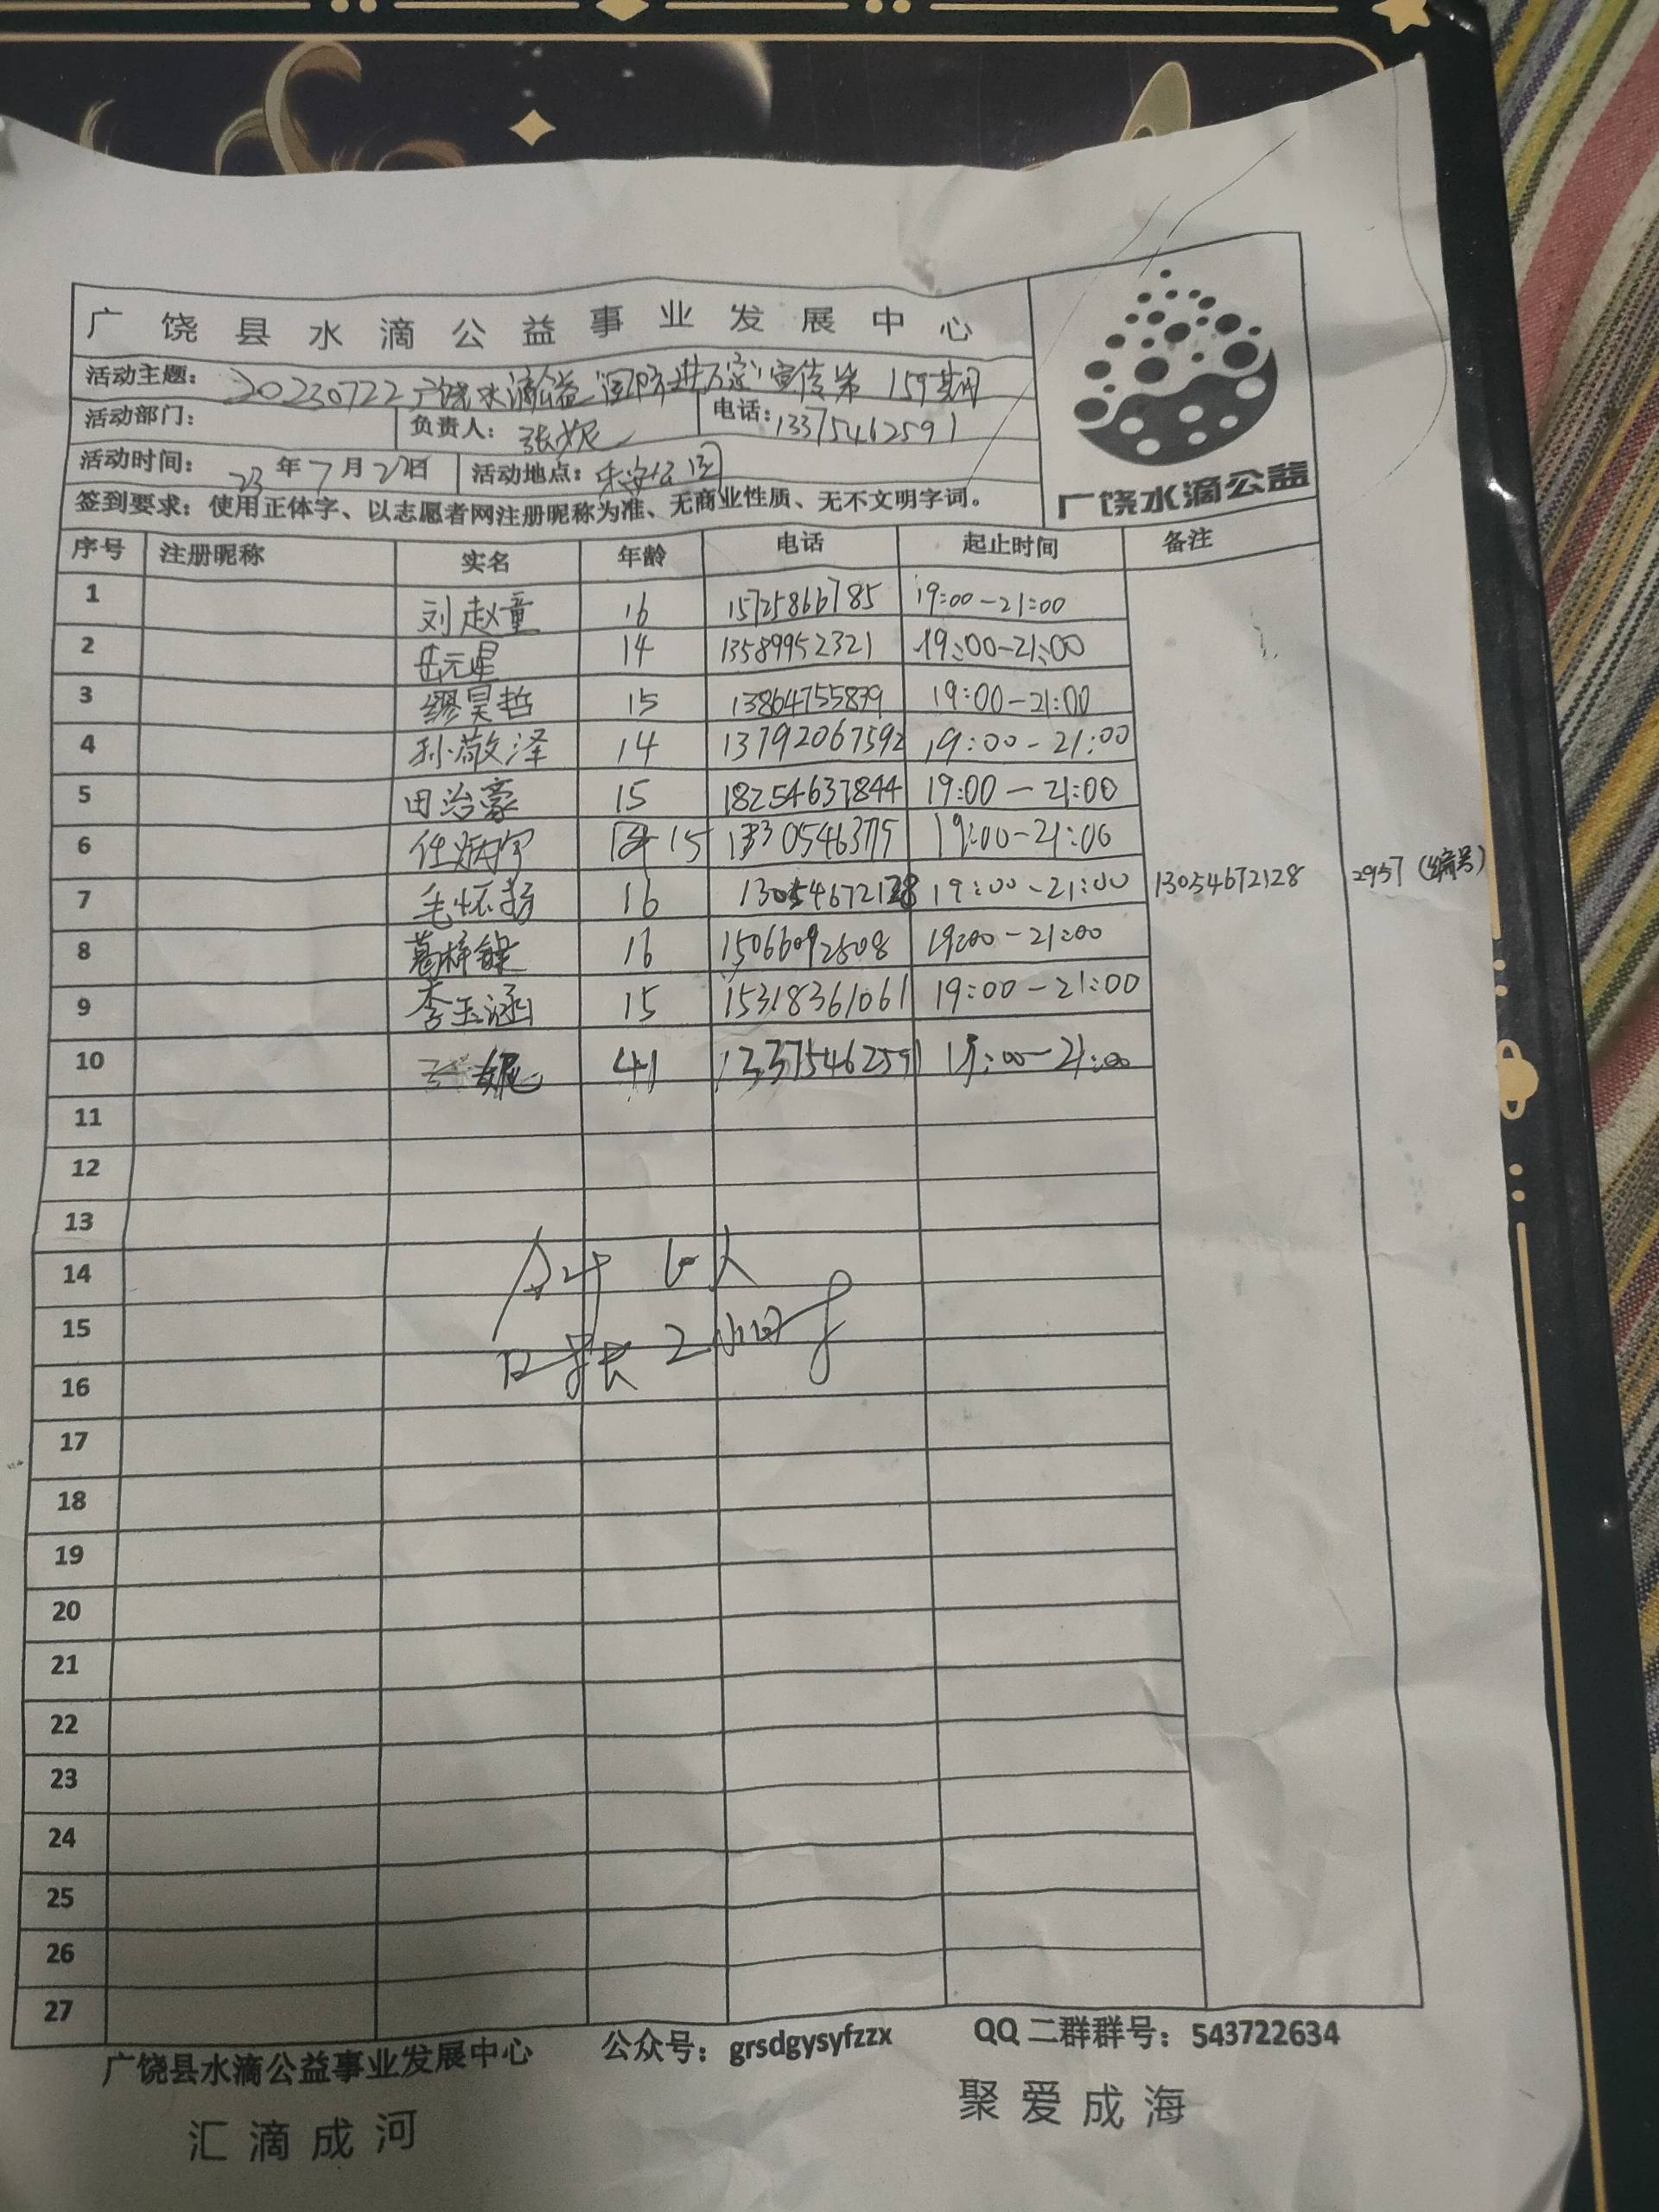 广饶县水滴公益事业发展中心
活动主题：20230722广饶水滴公益"国防进万家"宣传第159期
活动部门： 负责人：张妮 电话：13375462591
活动时间：23年7月22日 活动地点：乐安公园
签到要求：使用正体字、以志愿者网注册昵称为准、无商业性质、无不文明字词。
广饶水滴公益
序号 注册昵称 实名 年龄 电话 起止时间 备注
1 刘赵童 16 15725866785 19:00-21:00
2 岳元星 14 13589952321 19:00-21:00
3 缪昊哲 15 13864755839 19:00-21:00
4 孙敬泽 14 13792067592 19:00-21:00
5 田治豪 15 18254637844 19:00-21:00
6 任炳宇 15 19:00-21:00
7 毛怀扬 16 13054672128 19:00-21:00 13054672128 (编号)
8 葛梓 16 15066092508 19:00-21:00
9 李玉涵 15 15318361061 19:00-21:00
10 张妮 41 13375462591 19:00-21:00
11
12
13
14 合计 10人
15 时长 2小时
16
17
18
19
20
21
22
23
24
25
26
27
广饶县水滴公益事业发展中心 公众号：grsdgysyfzzx QQ二群群号：543722634
汇滴成河 聚爱成海